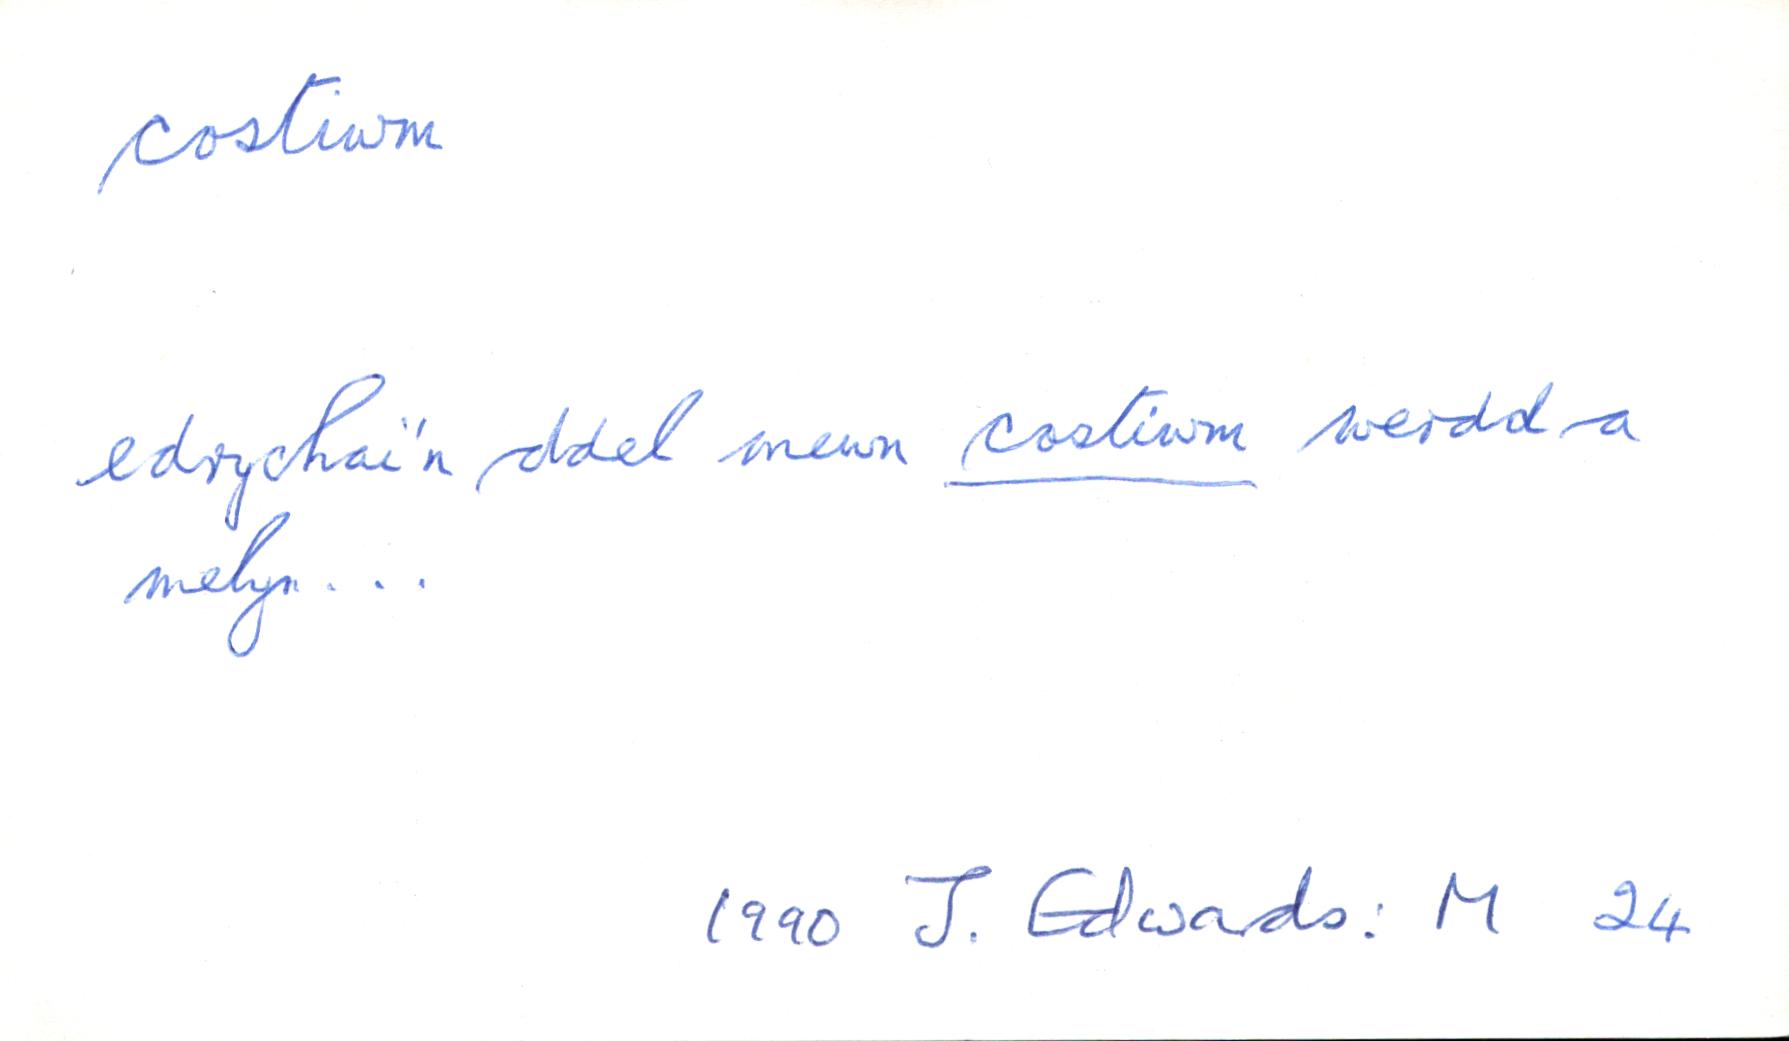 costiwm
edrychai'n ddel mewn costiwm werdd a
melyn...
1990 J. Edwards: M 24